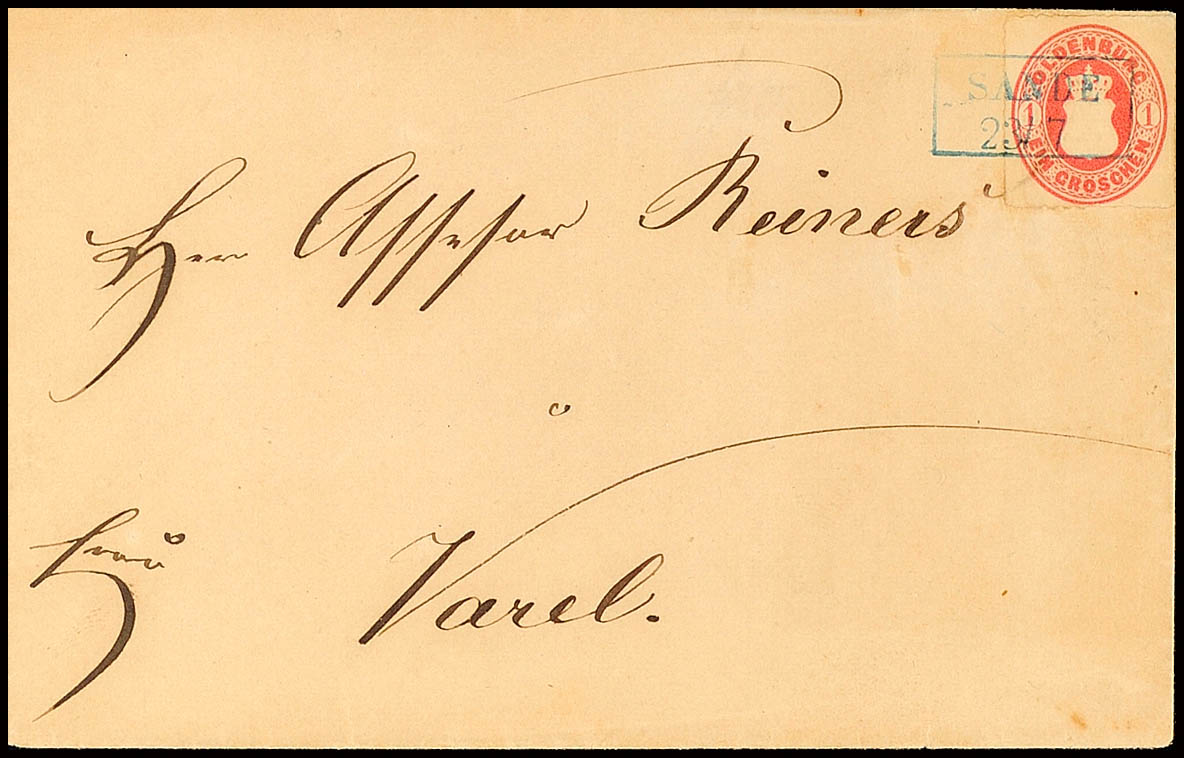 OLDENBURG
1 1
EIN GROSCHEN
SANDE
23 7
Herr Assessor Reiners
Varel.